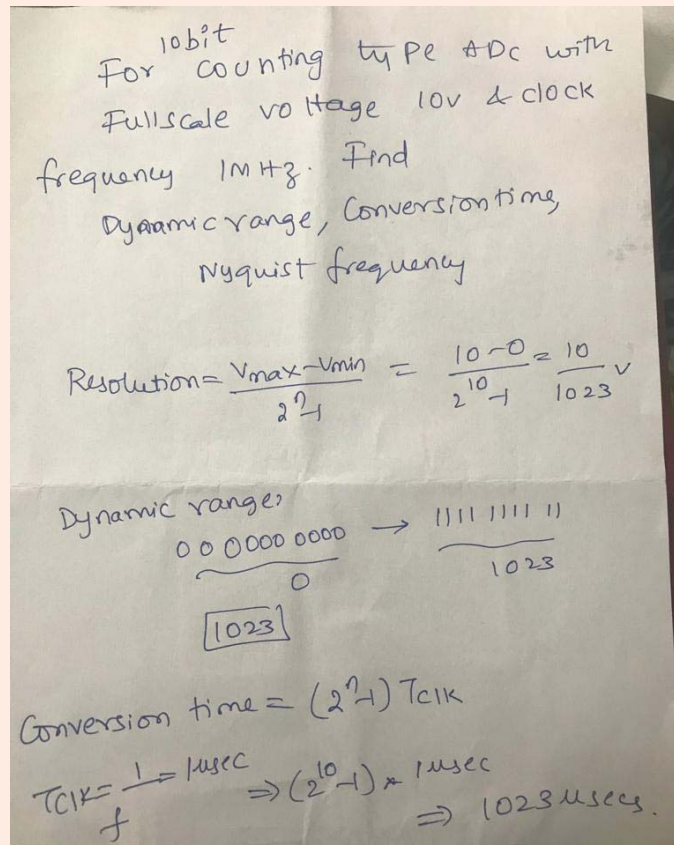 10bit
For counting type ADC with
Fullscale voltage 10v & clock
frequency 1MHz. Find
Dynamic range, Conversion time,
Nyquist frequency
Resolution = Vmax-Vmin / 2^n-1 = 10-0 / 2^10-1 = 10 / 1023 v
Dynamic range,
00 0000 0000 → 1111 1111 11
0 1023
1023
Conversion time = (2^n-1) TClK
TClK = 1/f = 1μsec ⇒ (2^10-1) * 1μsec
⇒ 1023 μsecs.